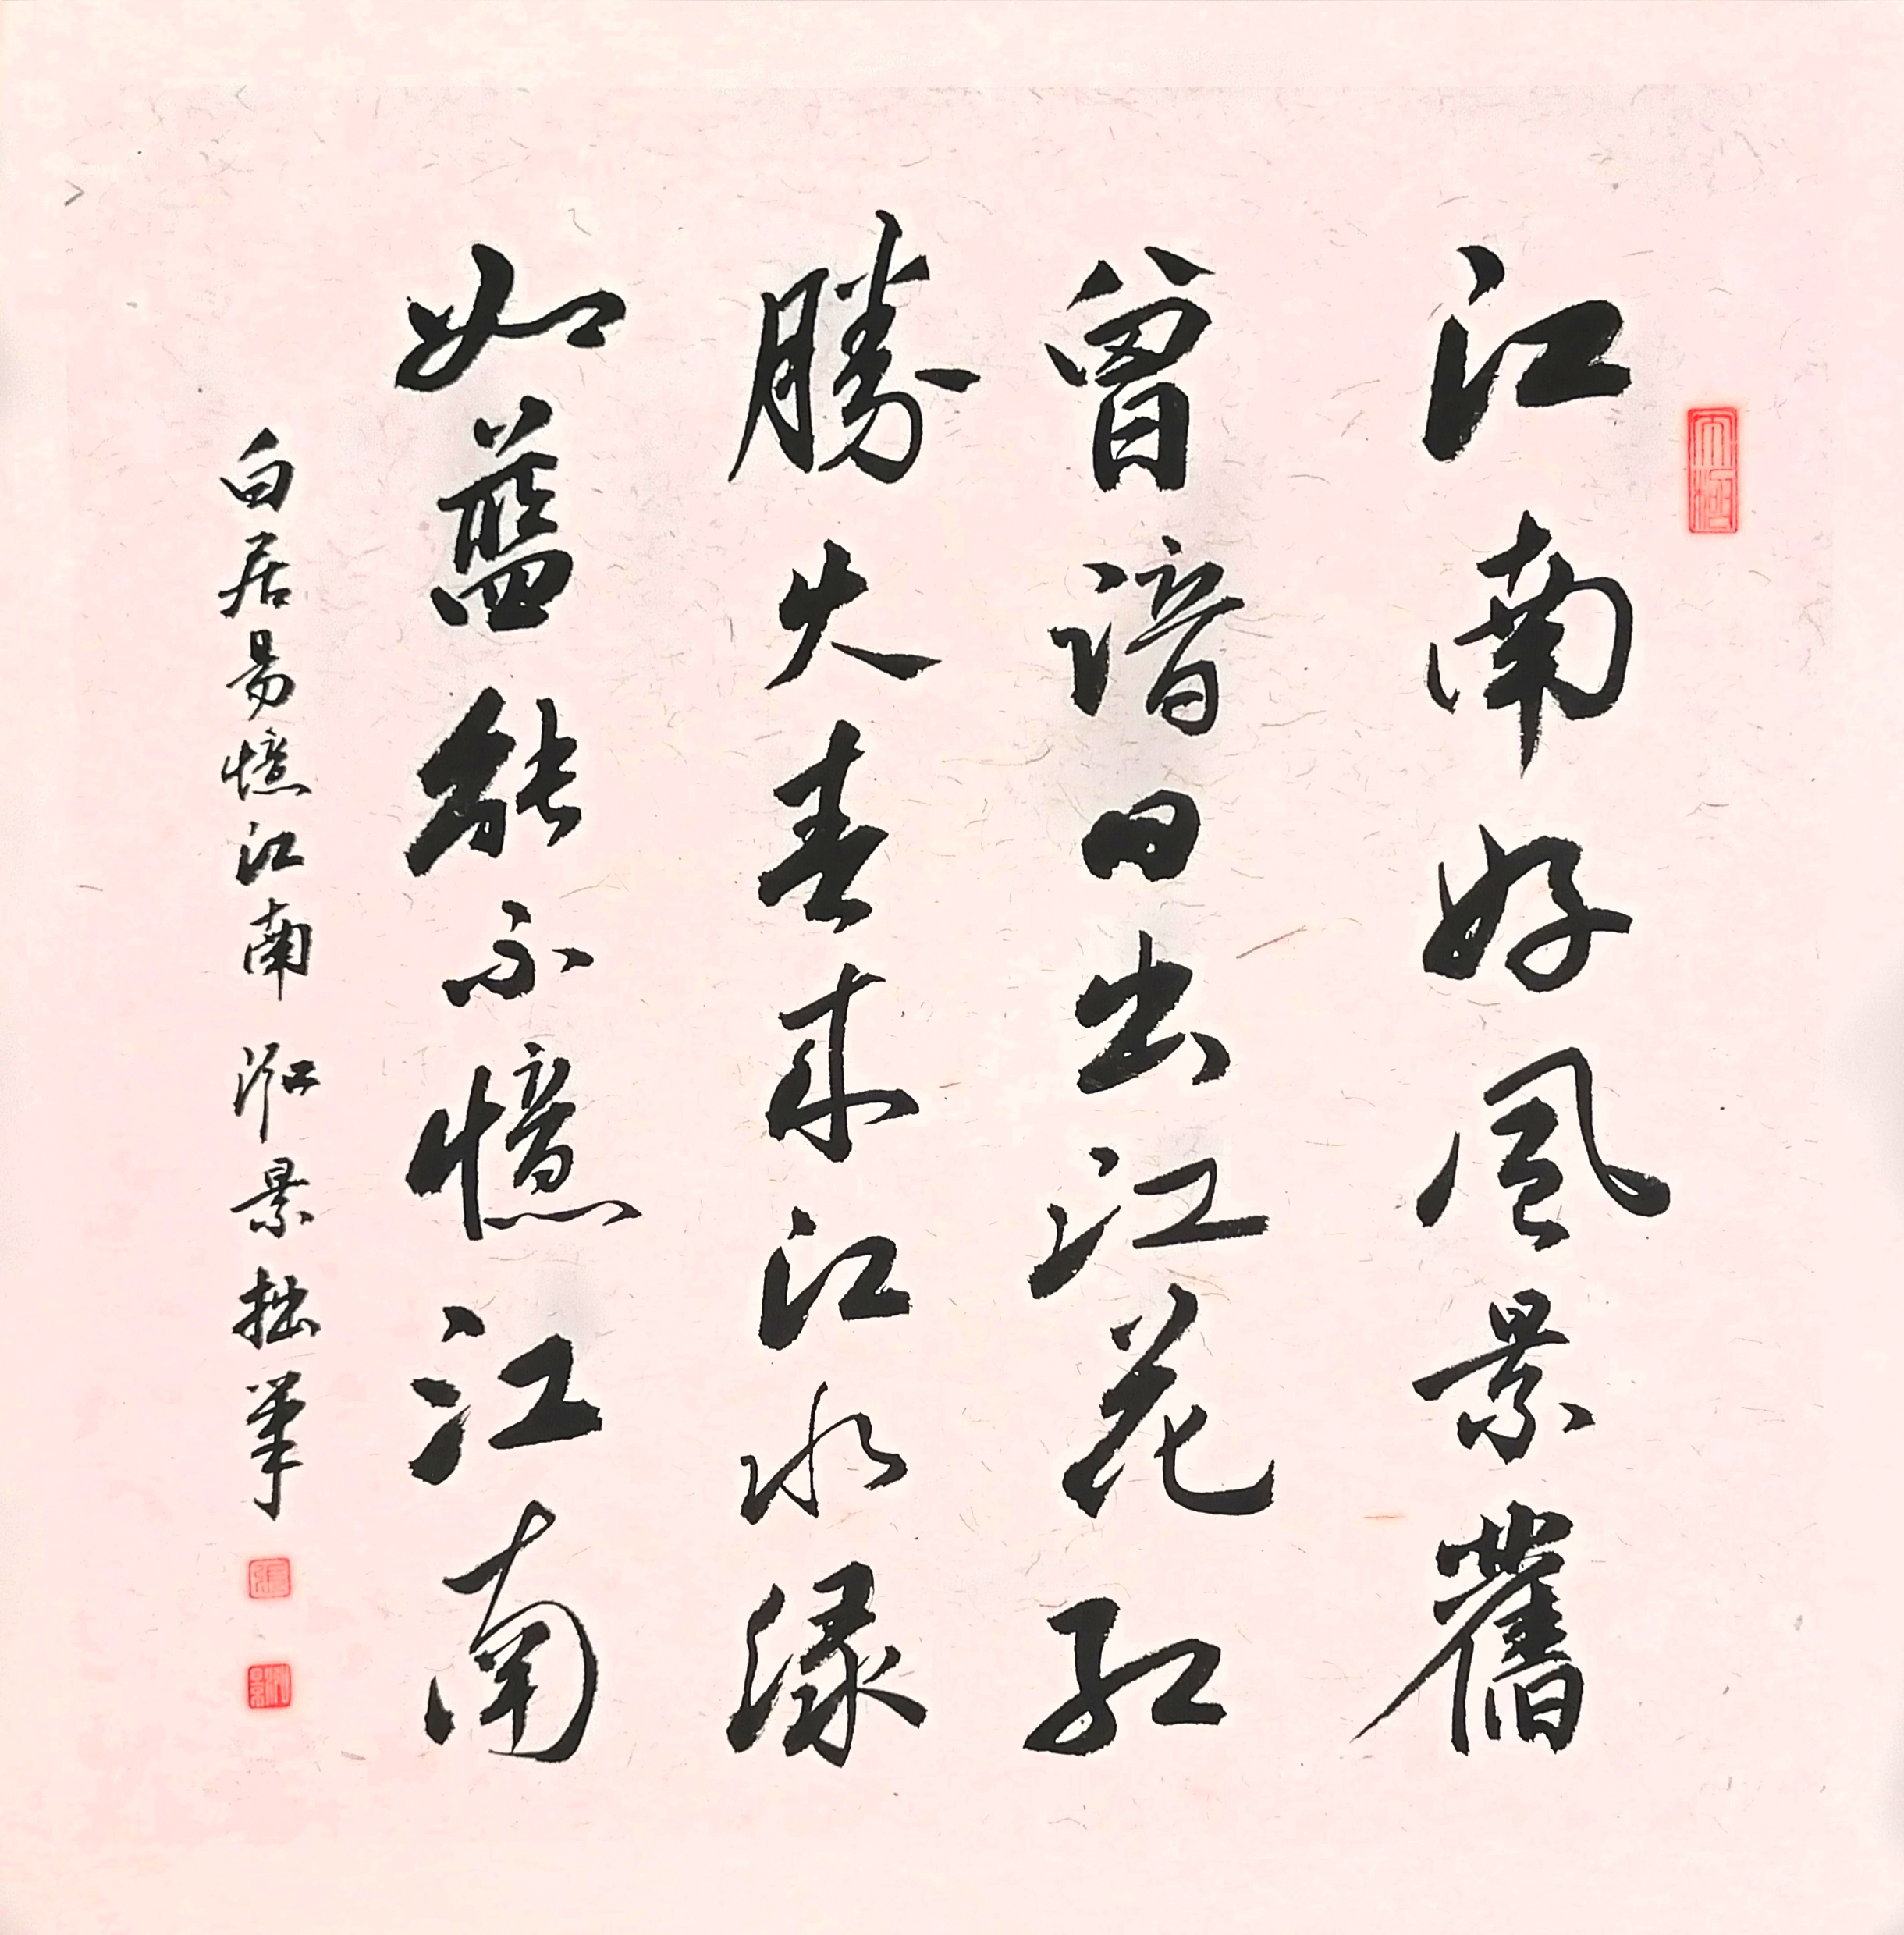 江南好風景舊
曾諳日出江花紅
勝火春来江水緑
如藍能不憶江南
白居易憶江南 泓景拙筆